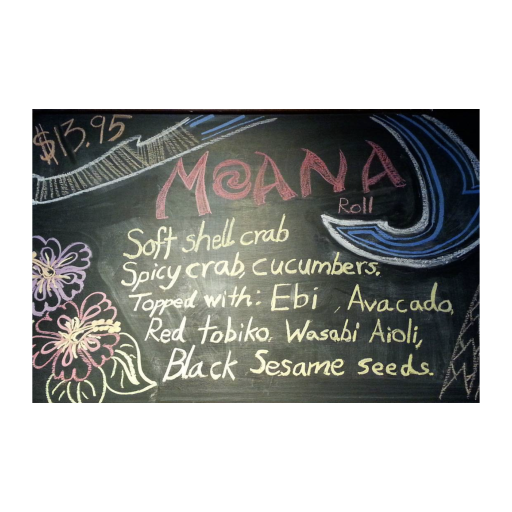 $13.95
MOANA
Roll
Soft shell crab
Spicy crab, cucumbers,
Topped with: Ebi , Avacado,
Red tobiko, Wasabi Aioli,
Black Sesame seeds.